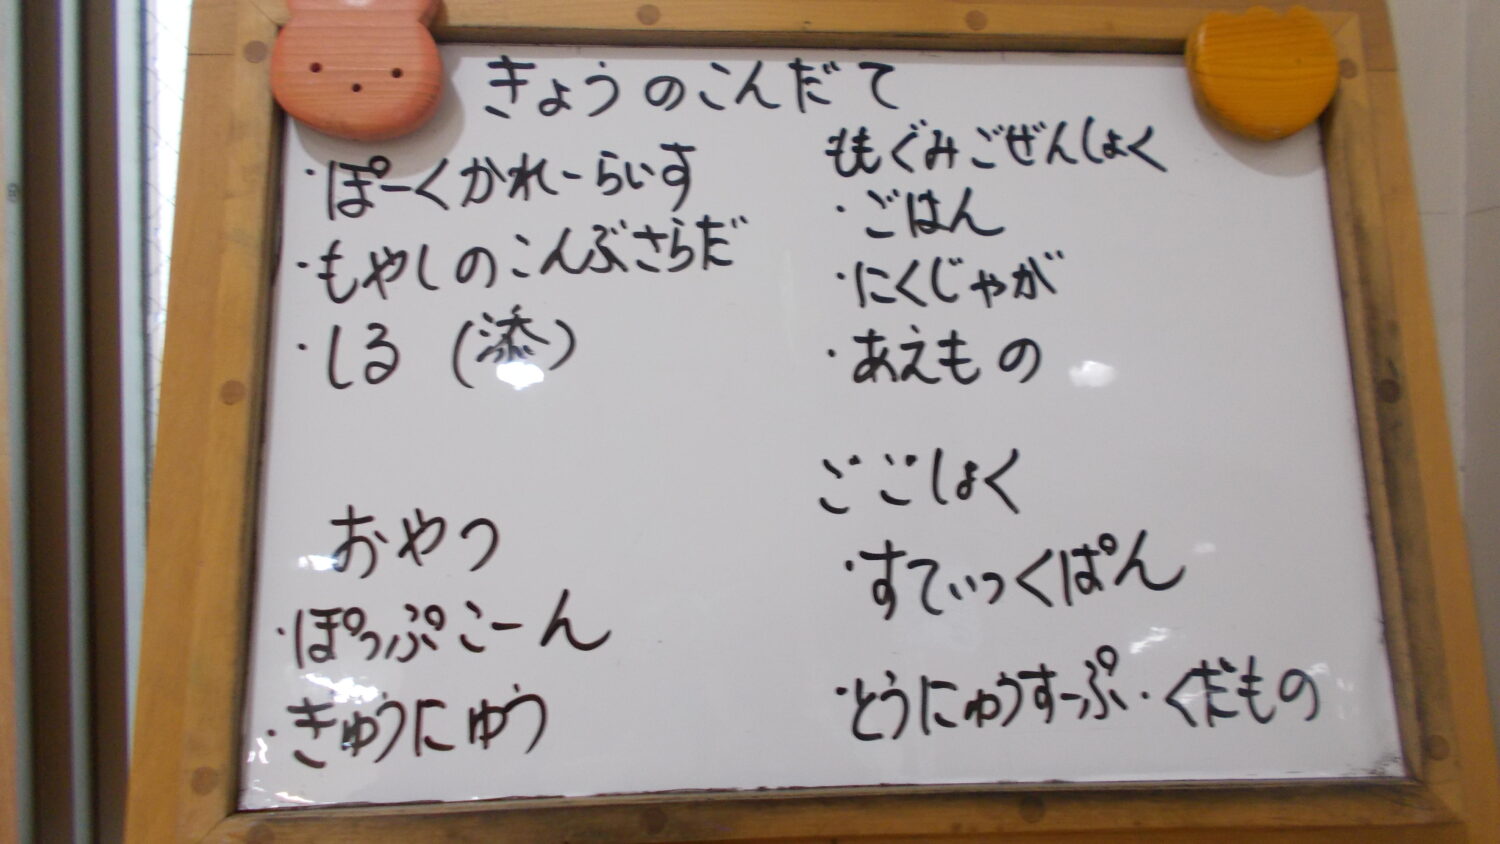 きょうのこんだて
・ぽーくかれーらいす
・もやしのこんぶさらだ
・しる (添)
おやつ
・ぽっぷこーん
・ぎゅうにゅう
ももぐみごぜんしょく
・ごはん
・にくじゃが
・あえもの
ごごしょく
・すてぃっくぱん
・とうにゅうすーぷ・くだもの